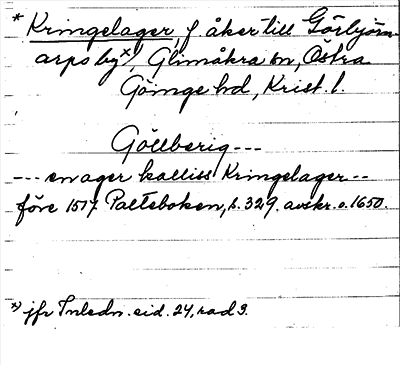 * Kringelager, f åker till Görbjörn-
arps by x), Glimåkra sn, Östra
Göinge hd, Krist. l.
Göllberig ---
--- en ager kalliss Kringelager --
före 1517 Palteboken, s. 329. avskr. o. 1650.
x) jfr Inledn. sid. 24, rad 9.